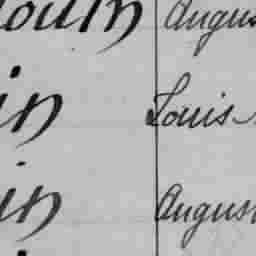 outh Augus
in Louis
in Augus